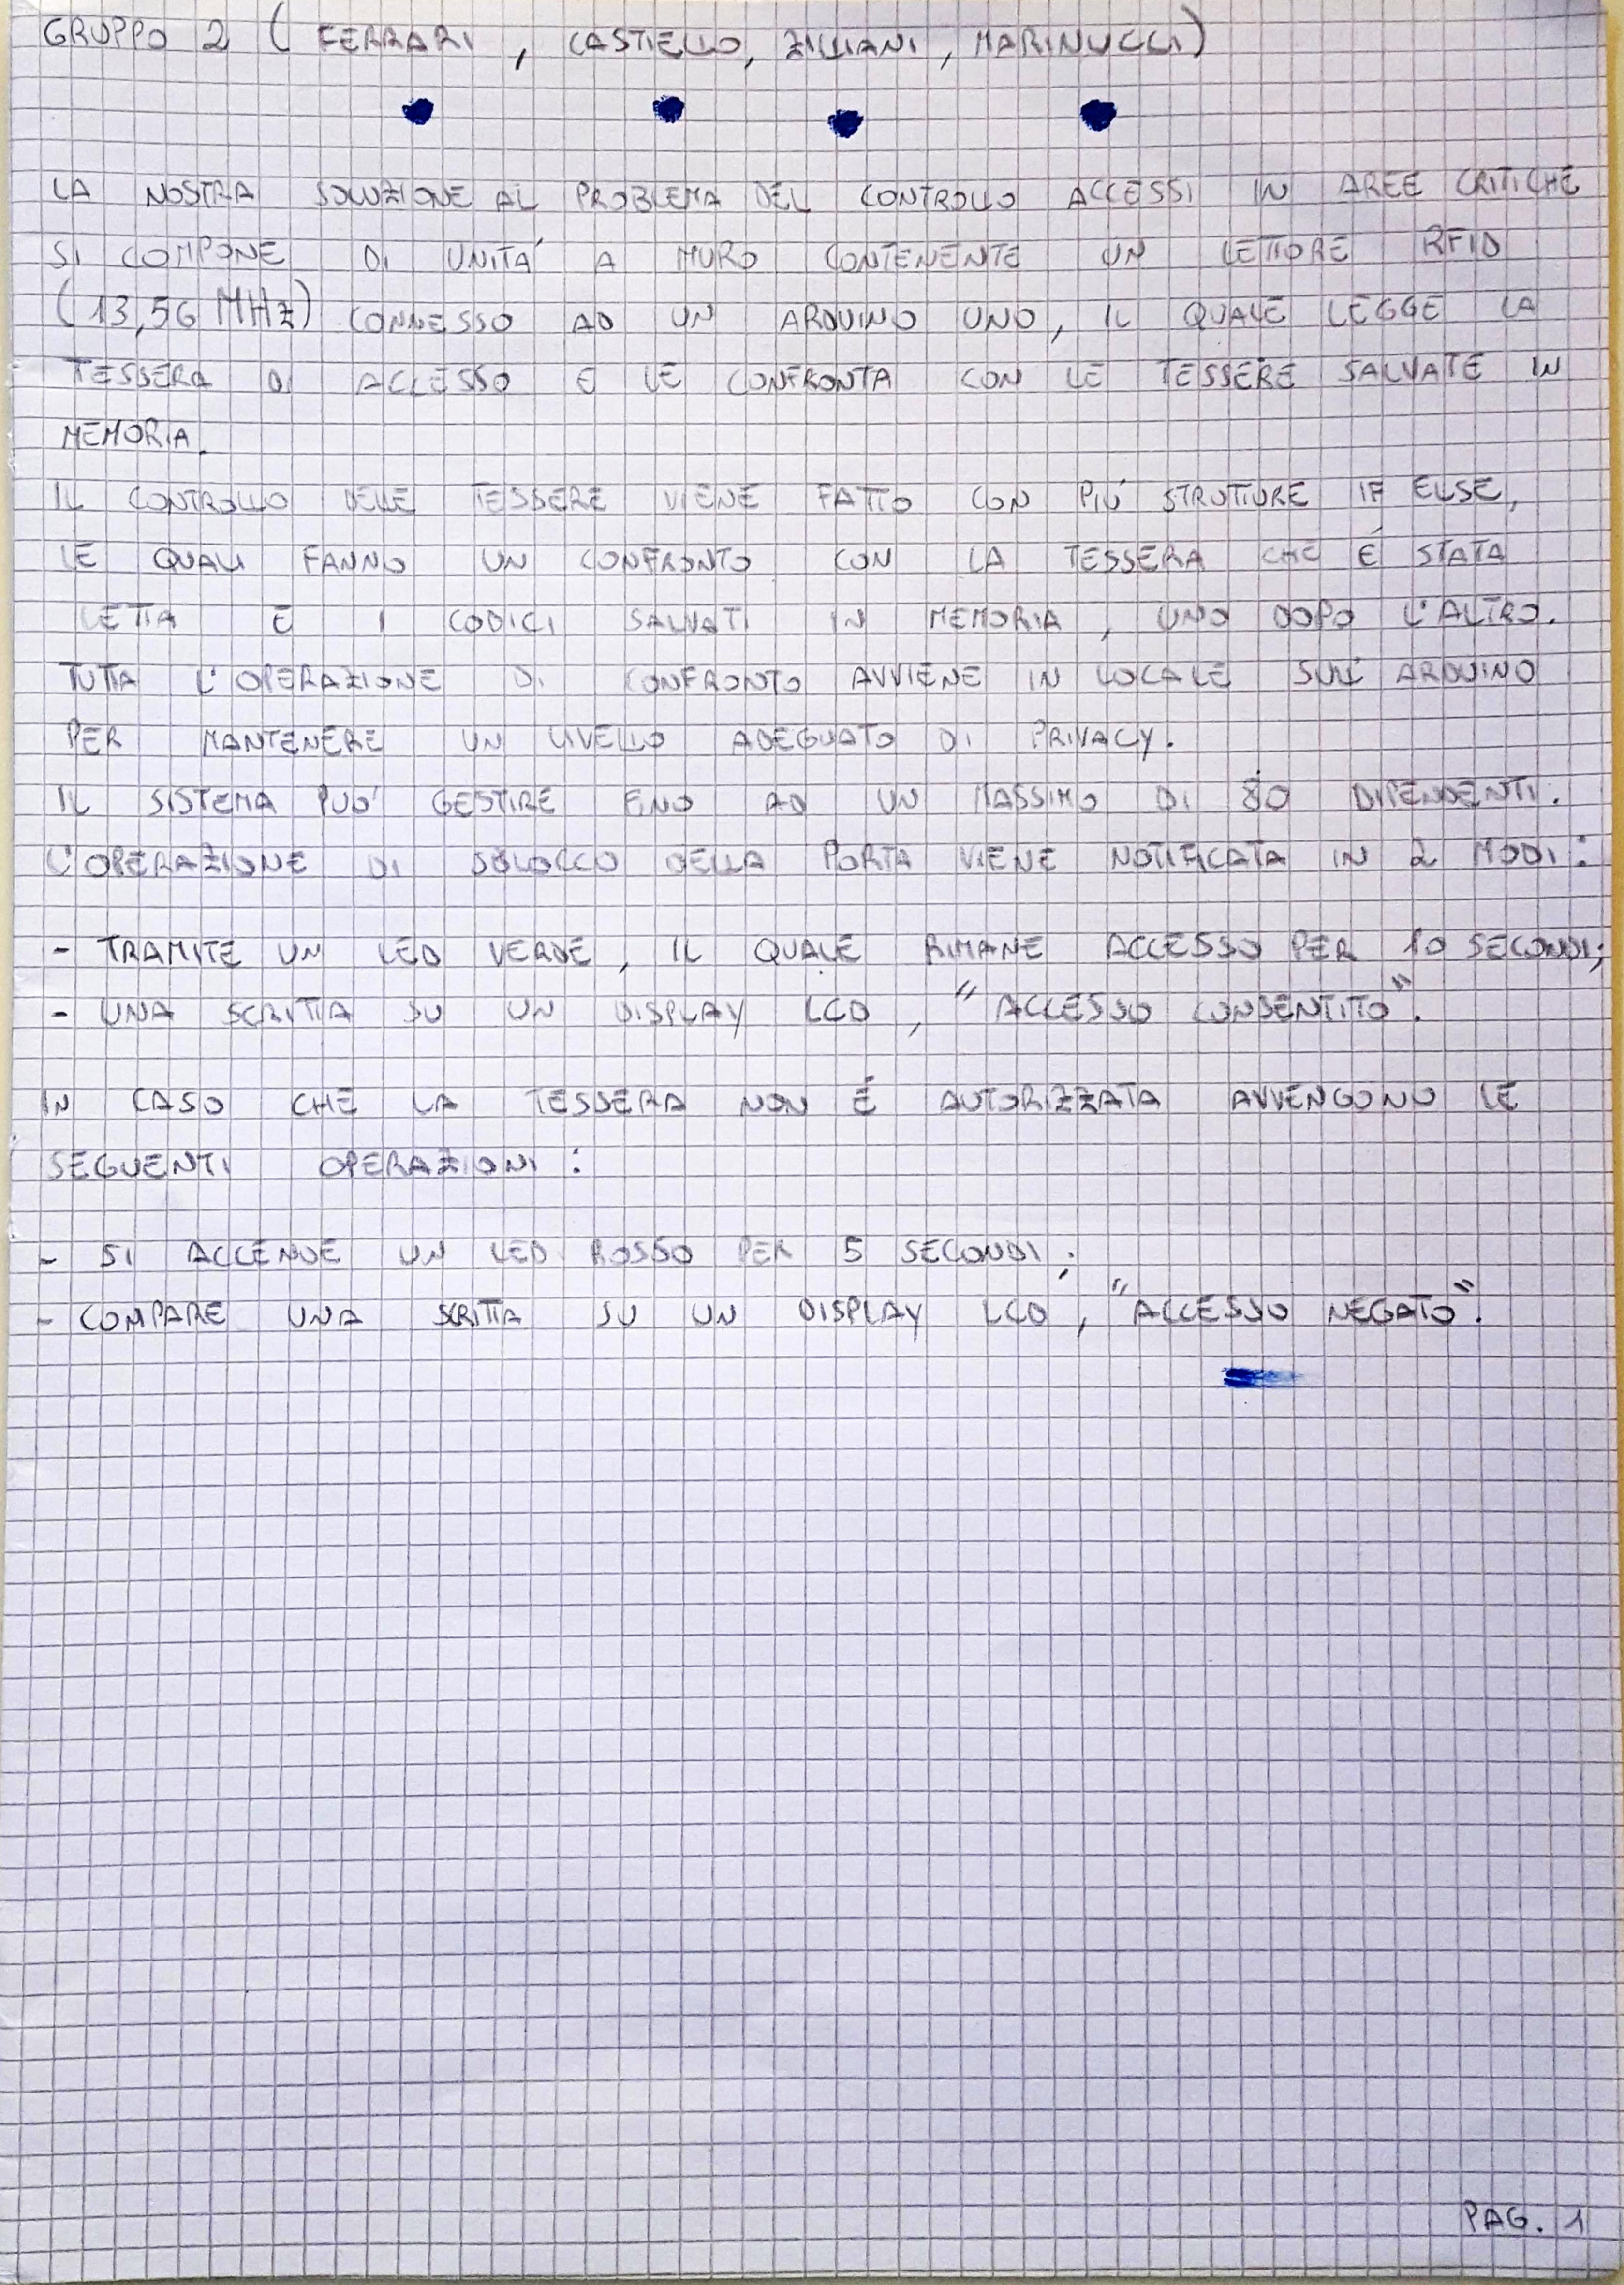 GRUPPO 2 ( FERRARI , CASTIELLO, ZILIANI , MARINUCCI)
LA NOSTRA SOLUZIONE AL PROBLEMA DEL CONTROLLO ACCESSI IN AREE CRITICHE
SI COMPONE DI UNITA' A MURO CONTENENTE UN LETTORE RFID
(13,56 MHz) CONNESSO AD UN ARDUINO UNO, IL QUALE LEGGE LA
TESSERA DI ACCESSO E LE CONFRONTA CON LE TESSERE SALVATE IN
MEMORIA.
IL CONTROLLO DELLE TESSERE VIENE FATTO CON PIU' STRUTTURE IF ELSE,
LE QUALI FANNO UN CONFRONTO CON LA TESSERA CHE É STATA
LETTA E I CODICI SALVATI IN MEMORIA , UNO DOPO L'ALTRO.
TUTTA L'OPERAZIONE DI CONFRONTO AVVIENE IN LOCALE SULL' ARDUINO
PER MANTENERE UN LIVELLO ADEGUATO DI PRIVACY.
IL SISTEMA PUO' GESTIRE FINO AD UN MASSIMO DI 80 DIPENDENTI.
L'OPERAZIONE DI SBLOCCO DELLA PORTA VIENE NOTIFICATA IN 2 MODI:
- TRAMITE UN LED VERDE , IL QUALE RIMANE ACCESSO PER 10 SECONDI;
- UNA SCRITTA SU UN DISPLAY LCD , "ACCESSO CONSENTITO".
IN CASO CHE LA TESSERA NON É AUTORIZZATA AVVENGONO LE
SEGUENTI OPERAZIONI :
- SI ACCENDE UN LED ROSSO PER 5 SECONDI ;
- COMPARE UNA SCRITTA SU UN DISPLAY LCD , "ACCESSO NEGATO".
PAG. 1